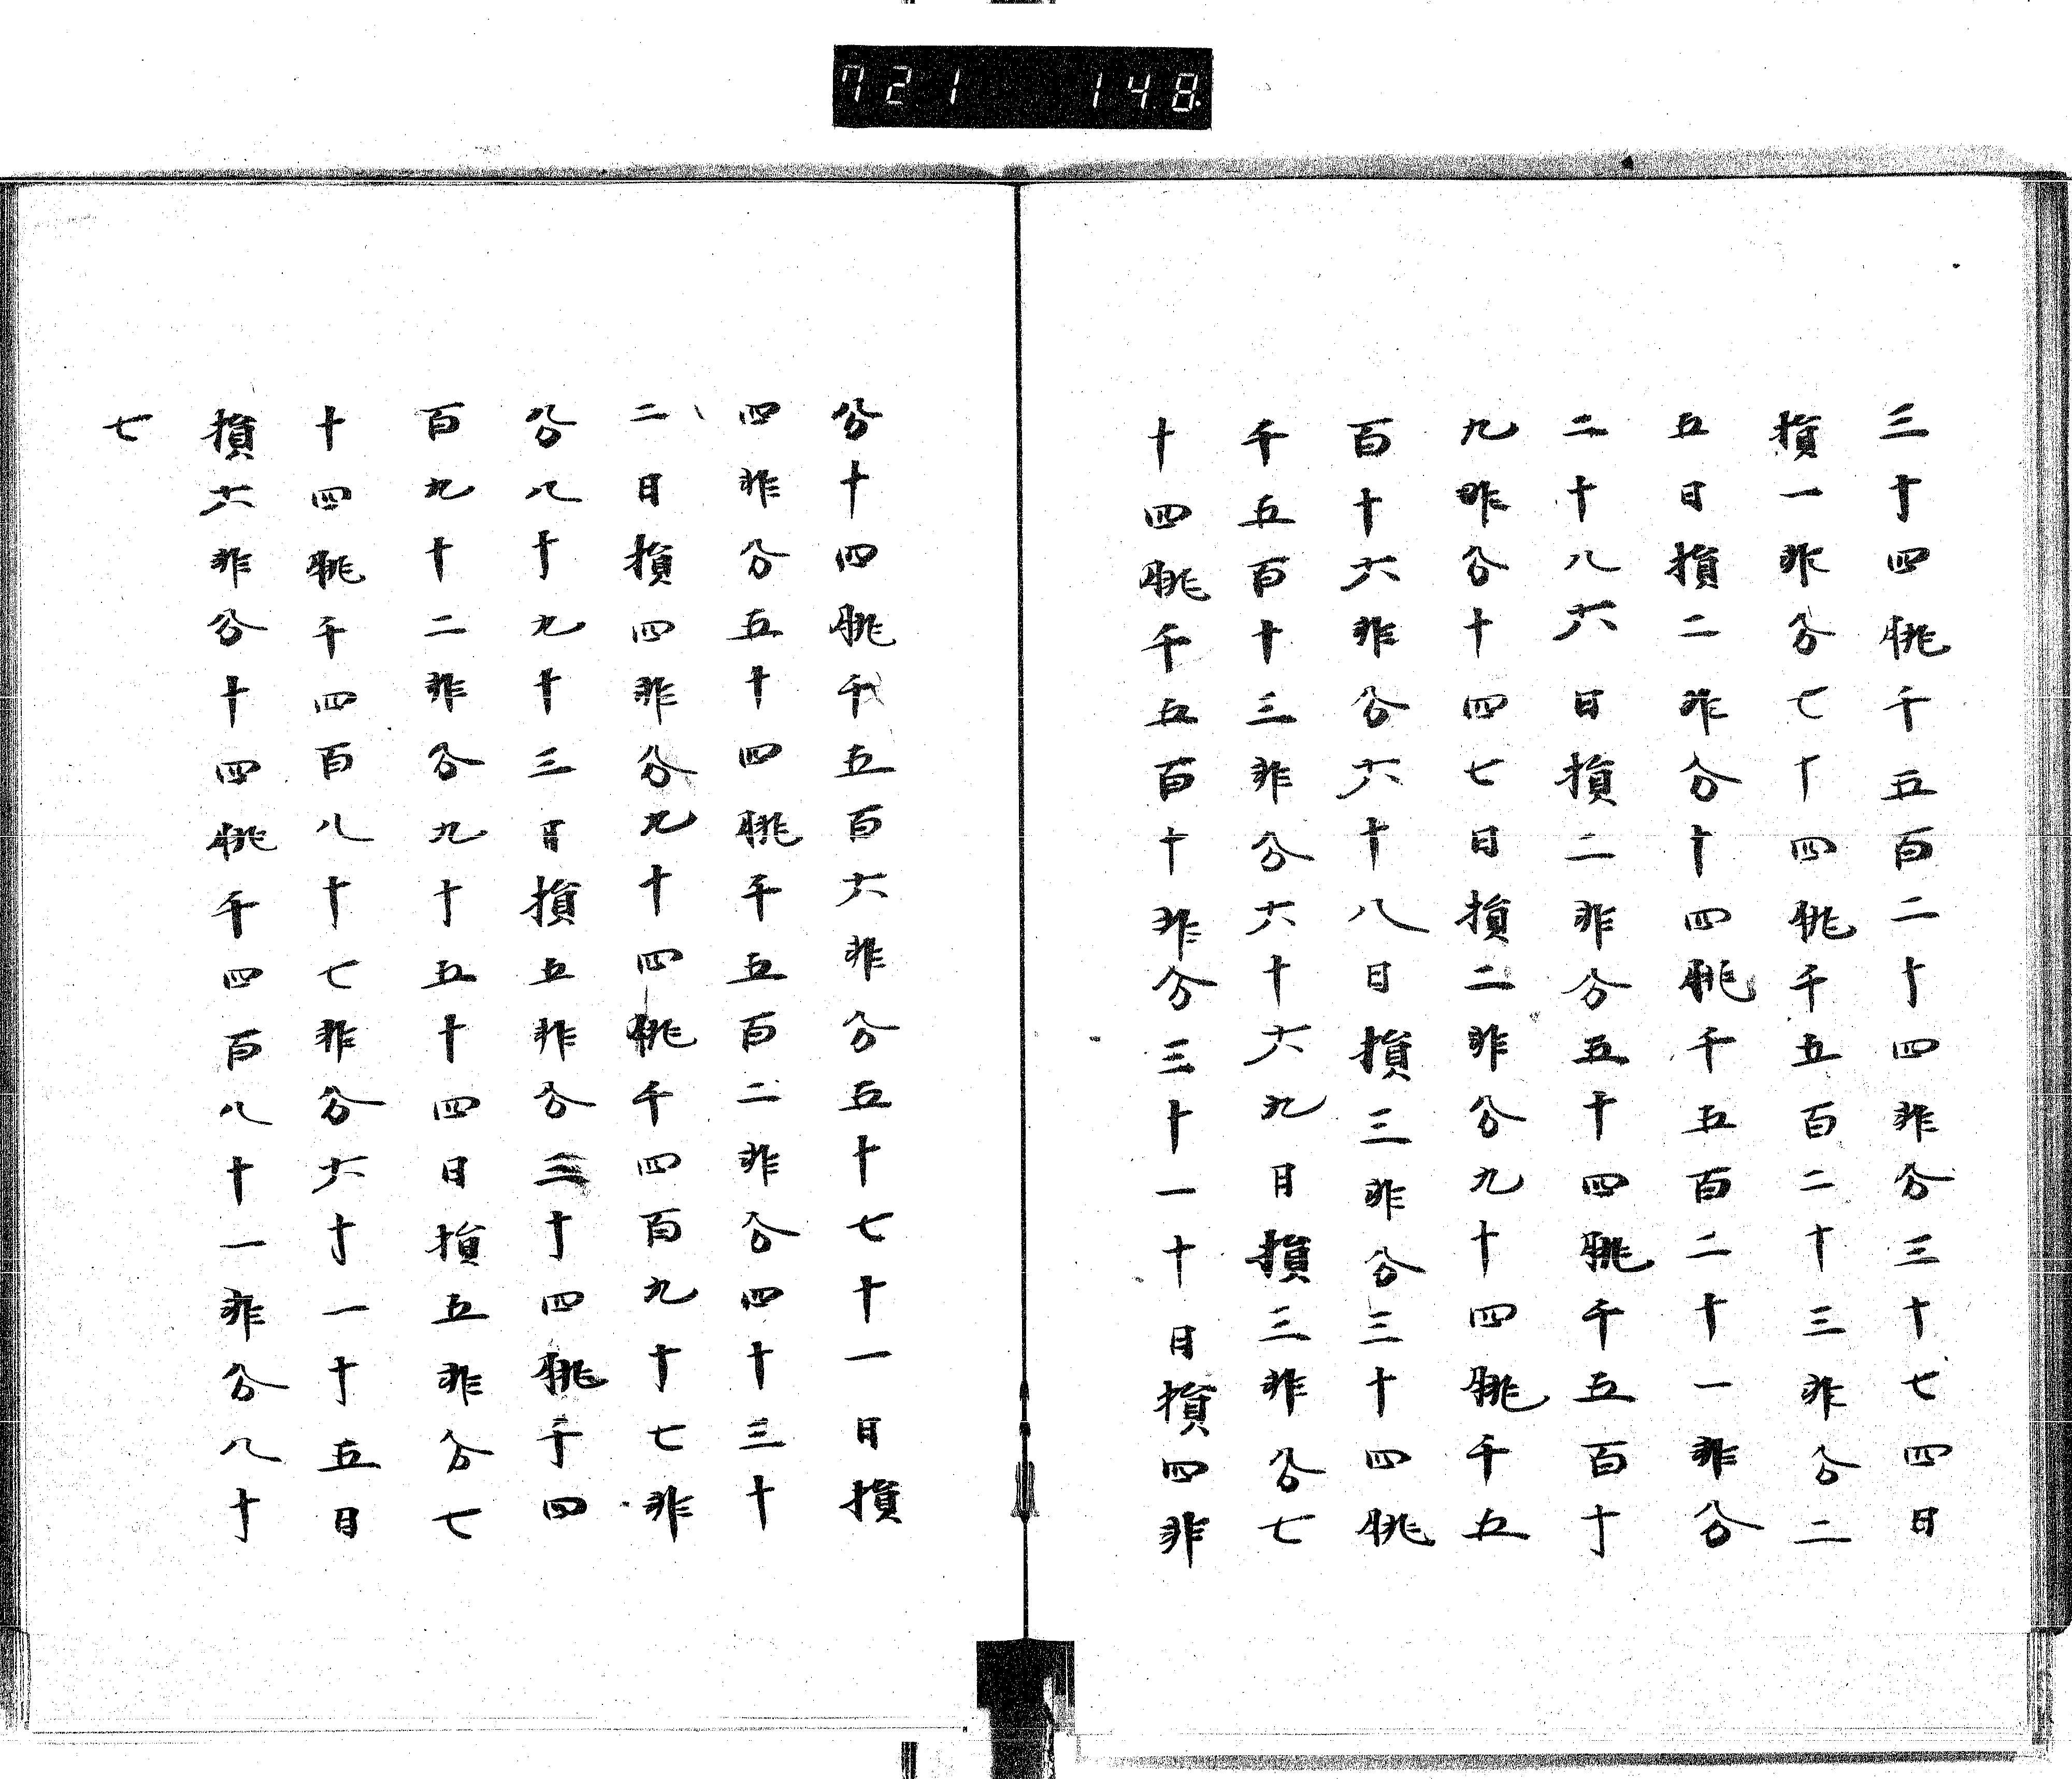 721 148
三十四朓千五百二十四非分三十七四日
損一非分七十四朓千五百二十三非分二
五日損二非分十四朓千五百二十一非分
二十八六日損二非分五十四朓千五百十
九非分十四七日損二非分九十四朓千五
百十六非分六十八日損三非分三十四朓
千五百十三非分六十六九日損三非分七
十四朓千五百十非分三十一十日損四非
分十四朓千五百六非分五十七十一日損
四非分五十四朓千五百二非分四十三十
二日損四非分九十四朓千四百九十七非
分八十九十三日損五非分三十四朓千四
百九十二非分九十五十四日損五非分七
十四朓千四百八十七非分六十一十五日
損六非分十四朓千四百八十一非分八十
七